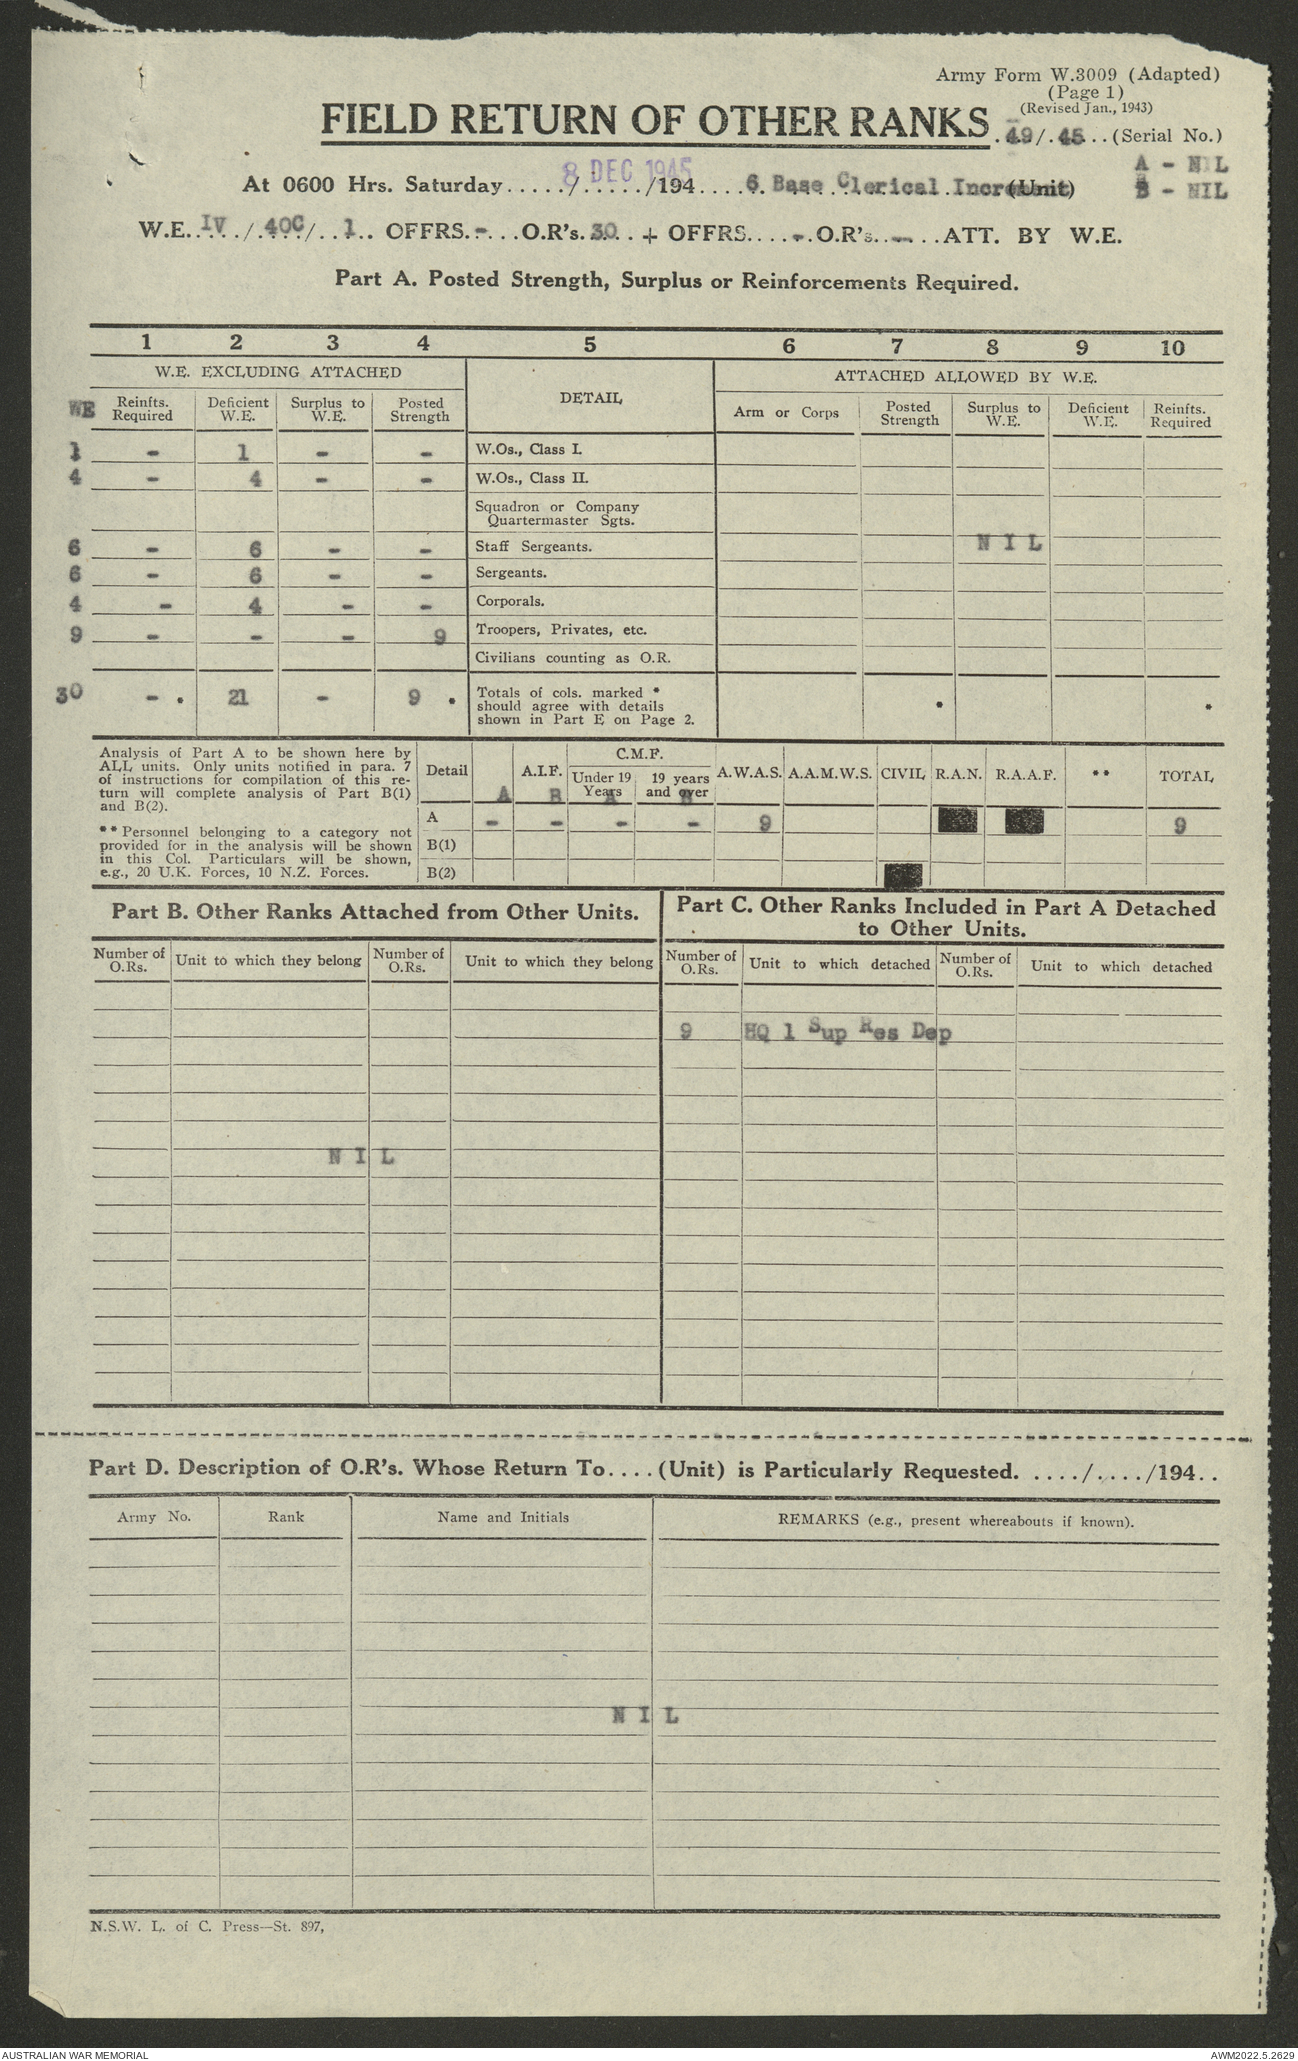 Army Form W.3009 (Adapted)
(Page 1)
(Revised Jan., 1943)
FIELD RETURN OF OTHER RANKS. 49/. 45. . (Serial No.)
A - NIL
B - NIL
At 0600 Hrs. Saturday...../...../194.... 8 DEC 1945 6 Base Clerical Increment (Unit)
W.E. IV / 40C/ . . 1. . OFFRS. - . . . O.R's. 30 . . + OFFRS. . . . - . O.R's. . - . . . ATT. BY W.E.
Part A. Posted Strength, Surplus or Reinforcements Required.
1 2 3 4 5 6 7 8 9 10
W.E. EXCLUDING ATTACHED DETAIL ATTACHED ALLOWED BY W.E.
WE Reinfts. Required Deficient W.E. Surplus to W.E. Posted Strength Arm or Corps Posted Strength Surplus to W.E. Deficient W.E. Reinfts. Required
1 - 1 - - W.Os., Class I.
4 - 4 - - W.Os., Class II.
Squadron or Company
Quartermaster Sgts.
6 - 6 - - Staff Sergeants. N I L
6 - 6 - - Sergeants.
4 - 4 - - Corporals.
9 - - - 9 Troopers, Privates, etc.
Civilians counting as O.R.
30 - * 21 - 9 * Totals of cols. marked *
should agree with details
shown in Part E on Page 2. * *
Analysis of Part A to be shown here by
ALL units. Only units notified in para. 7
of instructions for compilation of this re-
turn will complete analysis of Part B(1)
and B(2).
** Personnel belonging to a category not
provided for in the analysis will be shown
in this Col. Particulars will be shown,
e.g., 20 U.K. Forces, 10 N.Z. Forces.
Detail A.I.F. C.M.F. A.W.A.S. A.A.M.W.S. CIVIL R.A.N. R.A.A.F. ** TOTAL
Under 19 Years 19 years and over
A B A B
A - - - - 9 9
B(1)
B(2)
Part B. Other Ranks Attached from Other Units.
Number of O.Rs. Unit to which they belong Number of O.Rs. Unit to which they belong
N I L
Part C. Other Ranks Included in Part A Detached
to Other Units.
Number of O.Rs. Unit to which detached Number of O.Rs. Unit to which detached
9 HQ 1 Sup Res Dep
Part D. Description of O.R's. Whose Return To. . . . (Unit) is Particularly Requested. . . . ./. . . ./194. .
Army No. Rank Name and Initials REMARKS (e.g., present whereabouts if known).
N I L
N.S.W. L. of C. Press—St. 897,
AUSTRALIAN WAR MEMORIAL AWM2022.5.2629